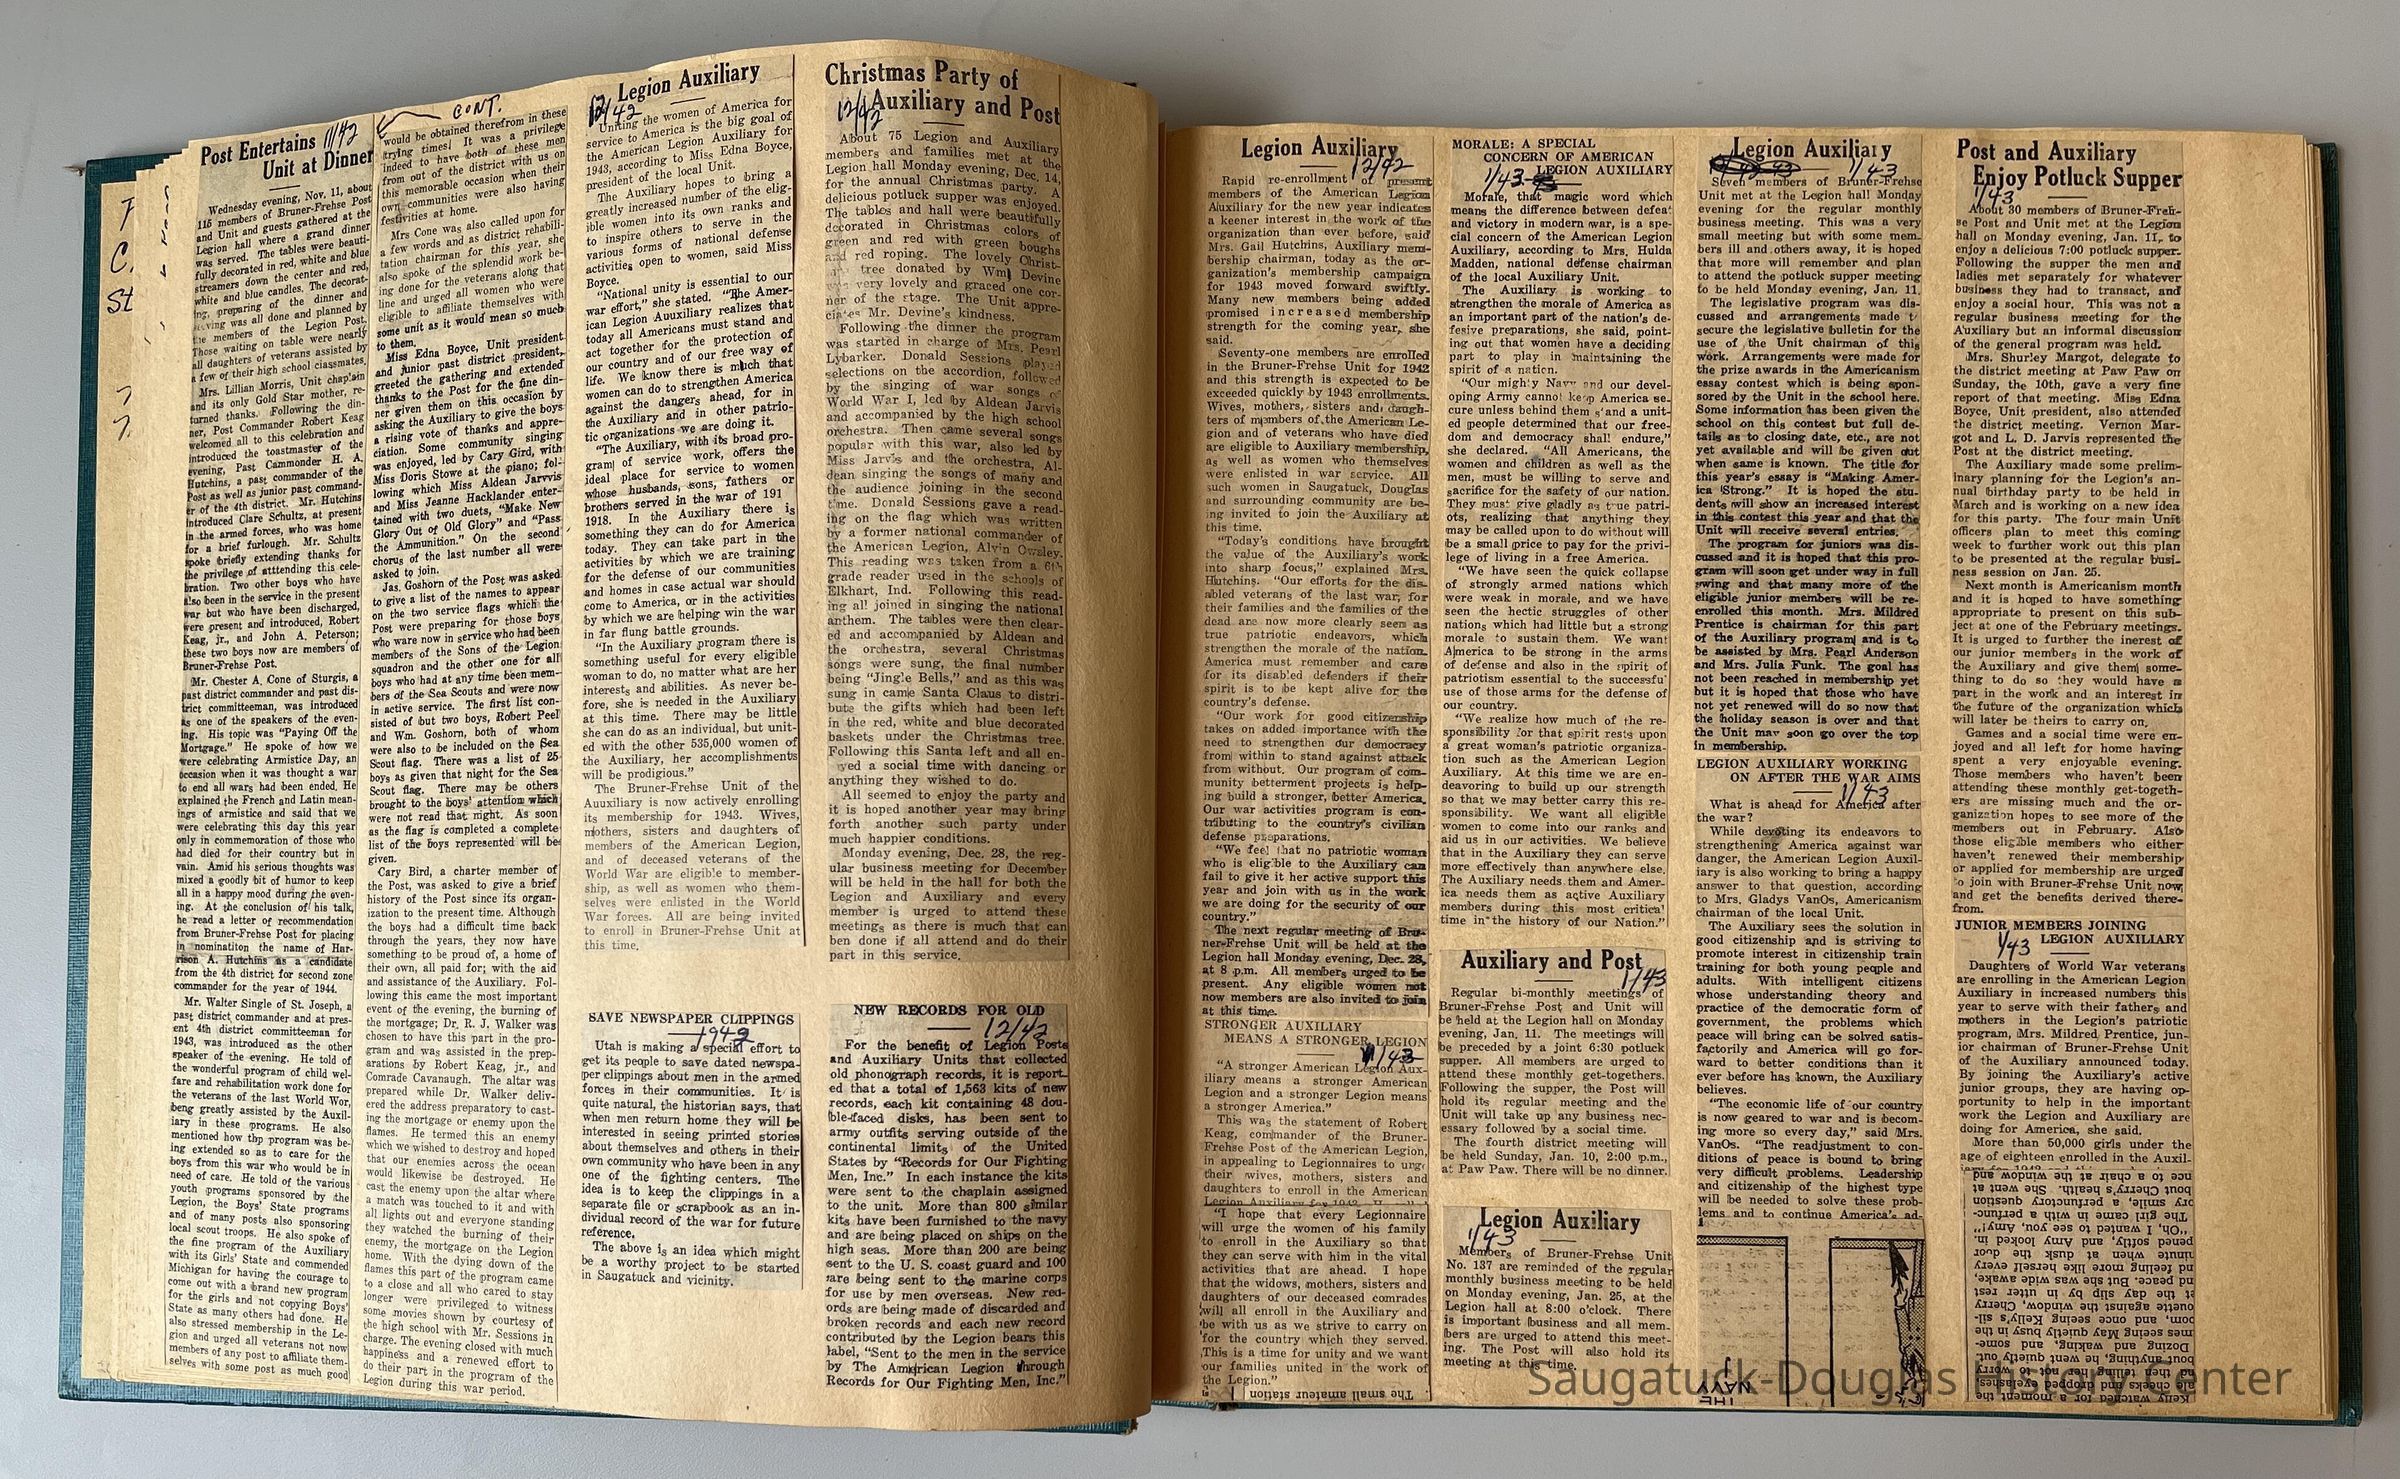 Post Entertains 11/42
Unit at Dinner
Wednesday evening, Nov. 11, about
115 members of Bruner-Frehse Post
and Unit and guests gathered at the
Legion hall where a grand dinner
was served. The tables were beauti-
fully decorated in red, white and blue
streamers down the center and red,
white and blue candles. The decorat-
ing, preparing of the dinner and
serving was all done and planned by
the members of the Legion Post.
Those waiting on table were nearly
all daughters of veterans assisted by
a few of their high school classmates.
Mrs. Lillian Morris, Unit chaplain
and its only Gold Star mother, re-
turned thanks. Following the din-
ner, Post Commander Robert Keag
welcomed all to this celebration and
introduced the toastmaster of the
evening, Past Cammonder H. A.
Hutchins, a past commander of the
Post as well as junior past command-
er of the 4th district. Mr. Hutchins
introduced Clare Schultz, at present
in the armed forces, who was home
for a brief furlough. Mr. Schultz
spoke briefly extending thanks for
the privilege of atttending this cele-
bration. Two other boys who have
also been in the service in the present
war but who have been discharged,
were present and introduced, Robert
Keag, jr., and John A. Peterson;
these two boys now are members of
Bruner-Frehse Post.
Mr. Chester A. Cone of Sturgis, a
past district commander and past dis-
trict committeeman, was introduced
as one of the speakers of the even-
ing. His topic was "Paying Off the
Mortgage." He spoke of how we
were celebrating Armistice Day, an
occasion when it was thought a war
to end all wars had been ended. He
explained the French and Latin mean-
ings of armistice and said that we
were celebrating this day this year
only in commemoration of those who
had died for their country but in
vain. Amid his serious thoughts was
mixed a goodly bit of humor to keep
all in a happy mood during the even-
ing. At the conclusion of his talk,
he read a letter of recommendation
from Bruner-Frehse Post for placing
in nominatiton the name of Har-
rison A. Hutchins as a candidate
from the 4th district for second zone
commander for the year of 1944.
Mr. Walter Single of St. Joseph, a
past district commander and at pres-
ent 4th district committeeman for
1943, was introduced as the other
speaker of the evening. He told of
the wonderful program of child wel-
fare and rehabilitation work done for
the veterans of the last World War,
beng greatly assisted by the Auxil-
iary in these programs. He also
mentioned how thp program was be-
ing extended so as to care for the
boys from this war who would be in
need of care. He told of the various
youth programs sponsored by the
Legion, the Boys' State programs
and of many posts also sponsoring
local scout troops. He also spoke of
the fine program of the Auxiliary
with its Girls' State and commended
Michigan for having the courage to
come out with a brand new program
for the girls and not copying Boys'
State as many others had done. He
also stressed membership in the Le-
gion and urged all veterans not now
members of any post to affiliate them-
selves with some post as much good
CONT.
would be obtained therefrom in these
trying times. It was a privilege
indeed to have both of these men
from out of the district with us on
this memorable occasion when their
own communities were also having
festivities at home.
Mrs Cone was also called upon for
a few words and as district rehabili-
tation chairman for this year, she
also spoke of the splendid work be-
ing done for the veterans along that
line and urged all women who were
eligible to affiliate themselves with
some unit as it would mean so much
to them.
Miss Edna Boyce, Unit president
and junior past district president,
greeted the gathering and extended
thanks to the Post for the fine din-
ner given them on this occasion by
asking the Auxiliary to give the boys
a rising vote of thanks and appre-
ciation. Some community singing
was enjoyed, led by Cary Gird, with
Miss Doris Stowe at the piano; fol-
lowing which Miss Aldean Jarvvis
and Miss Jeanne Hacklander enter-
tained with two duets, "Make New
Glory Out of Old Glory" and "Pass
the Ammunition." On the second
chorus of the last number all were
asked to join.
Jas. Goshorn of the Post was asked
to give a list of the names to appear
on the two service flags which the
Post were preparing for those boys
who were now in service who had been
members of the Sons of the Legion
squadron and the other one for all
boys who had at any time been mem-
bers of the Sea Scouts and were now
in active service. The first list con-
sisted of but two boys, Robert Peel
and Wm. Goshorn, both of whom
were also to be included on the Sea
Scout flag. There was a list of 25
boys as given that night for the Sea
Scout flag. There may be others
brought to the boys' attention which
were not read that night. As soon
as the flag is completed a complete
list of the boys represented will be
given.
Cary Bird, a charter member of
the Post, was asked to give a brief
history of the Post since its organ-
ization to the present time. Although
the boys had a difficult time back
through the years, they now have
something to be proud of, a home of
their own, all paid for; with the aid
and assistance of the Auxiliary. Fol-
lowing this came the most important
event of the evening, the burning of
the mortgage; Dr. R. J. Walker was
chosen to have this part in the pro-
gram and was assisted in the prep-
arations by Robert Keag, jr., and
Comrade Cavanaugh. The altar was
prepared while Dr. Walker deliv-
ered the address preparatory to cast-
ing the mortgage or enemy upon the
flames. He termed this an enemy
which we wished to destroy and hoped
that our enemies across the ocean
would likewise be destroyed. He
cast the enemy upon the altar where
a match was touched to it and with
all lights out and everyone standing
they watched the burning of their
enemy, the mortgage on the Legion
home. With the dying down of the
flames this part of the program came
to a close and all who cared to stay
longer were privileged to witness
some movies shown by courtesy of
the high school with Mr. Sessions in
charge. The evening closed with much
happiness and a renewed effort to
do their part in the program of the
Legion during this war period.
Legion Auxiliary
12/42
Uniting the women of America for
service to America is the big goal of
the American Legion Auxiliary for
1943, according to Miss Edna Boyce,
president of the local Unit.
The Auxiliary hopes to bring a
greatly increased number of the elig-
ible women into its own ranks and
to inspire others to serve in the
various forms of national defense
activities open to women, said Miss
Boyce.
"National unity is essential to our
war effort," she stated. "The Amer-
ican Legion Auuxiliary realizes that
today all Americans must stand and
act together for the protection of
our country and of our free way of
life. We know there is much that
women can do to strengthen America
against the dangers ahead, for in
the Auxiliary and in other patrio-
tic organizations we are doing it.
"The Auxiliary, with its broad pro-
gram of service work, offers the
ideal place for service to women
whose husbands, sons, fathers or
brothers served in the war of 191
1918. In the Auxiliary there is
something they can do for America
today. They can take part in the
activities by which we are training
for the defense of our communities
and homes in case actual war should
come to America, or in the activities
by which we are helping win the war
in far flung battle grounds.
"In the Auxiliary program there is
something useful for every eligible
woman to do, no matter what are her
interests and abilities. As never be-
fore, she is needed in the Auxiliary
at this time. There may be little
she can do as an individual, but unit-
ed with the other 535,000 women of
the Auxiliary, her accomplishments
will be prodigious."
The Bruner-Frehse Unit of the
Auuxiliary is now actively enrolling
its membership for 1943. Wives,
mothers, sisters and daughters of
members of the American Legion,
and of deceased veterans of the
World War are eligible to member-
ship, as well as women who them-
selves were enlisted in the World
War forces. All are being invited
to enroll in Bruner-Frehse Unit at
this time.
SAVE NEWSPAPER CLIPPINGS
1942
Utah is making a special effort to
get its people to save dated newspa-
per clippings about men in the armed
forces in their communities. It is
quite natural, the historian says, that
when men return home they will be
interested in seeing printed stories
about themselves and others in their
own community who have been in any
one of the fighting centers. The
idea is to keep the clippings in a
separate file or scrapbook as an in-
dividual record of the war for future
reference.
The above is an idea which might
be a worthy project to be started
in Saugatuck and vicinity.
Christmas Party of
Auxiliary and Post
12/42
About 75 Legion and Auxiliary
members and families met at the
Legion hall Monday evening, Dec. 14,
for the annual Christmas party. A
delicious potluck supper was enjoyed.
The tables and hall were beautifully
decorated in Christmas colors of
green and red with green boughs
and red roping. The lovely Christ-
tree donated by Wm. Devine
very lovely and graced one cor-
ner of the stage. The Unit appre-
ciates Mr. Devine's kindness.
Following the dinner the program
was started in charge of Mrs. Pearl
Lybarker. Donald Sessions played
selections on the accordion, followed
by the singing of war songs of
World War I, led by Aldean Jarvis
and accompanied by the high school
orchestra. Then came several songs
popular with this war, also led by
Miss Jarvis and the orchestra, Al-
dean singing the songs of many and
the audience joining in the second
time. Donald Sessions gave a read-
ing on the flag which was written
by a former national commander of
the American Legion, Alvin Owsley.
This reading was taken from a 6th
grade reader used in the schools of
Elkhart, Ind. Following this read-
ing all joined in singing the national
anthem. The tables were then clear-
ed and accompanied by Aldean and
the orchestra, several Christmas
songs were sung, the final number
being "Jingle Bells," and as this was
sung in came Santa Claus to distri-
bute the gifts which had been left
in the red, white and blue decorated
baskets under the Christmas tree.
Following this Santa left and all en-
yed a social time with dancing or
anything they wished to do.
All seemed to enjoy the party and
it is hoped another year may bring
forth another such party under
much happier conditions.
Monday evening, Dec. 28, the reg-
ular business meeting for December
will be held in the hall for both the
Legion and Auxiliary and every
member is urged to attend these
meetings as there is much that can
ben done if all attend and do their
part in this service.
NEW RECORDS FOR OLD
12/42
For the benefit of Legion Posts
and Auxiliary Units that collected
old phonograph records, it is report-
ed that a total of 1,563 kits of new
records, each kit containing 48 dou-
ble-faced disks, has been sent to
army outfits serving outside of the
continental limits of the United
States by "Records for Our Fighting
Men, Inc." In each instance the kits
were sent to the chaplain assigned
to the unit. More than 800 similar
kits have been furnished to the navy
and are being placed on ships on the
high seas. More than 200 are being
sent to the U. S. coast guard and 100
are being sent to the marine corps
for use by men overseas. New rec-
ords are being made of discarded and
broken records and each new record
contributed by the Legion bears this
label, "Sent to the men in the service
by The American Legion through
Records for Our Fighting Men, Inc."
Legion Auxiliary
12/42
Rapid re-enrollment of present
members of the American Legion
Auxiliary for the new year indicates
a keener interest in the work of the
organization than ever before, said
Mrs. Gail Hutchins, Auxiliary mem-
bership chairman, today as the or-
ganization's membership campaign
for 1943 moved forward swiftly.
Many new members being added
promised increased membership
strength for the coming year, she
said.
Seventy-one members are enrolled
in the Bruner-Frehse Unit for 1942
and this strength is expected to be
exceeded quickly by 1943 enrollments.
Wives, mothers, sisters and daugh-
ters of members of the American Le-
gion and of veterans who have died
are eligible to Auxiliary membership,
as well as women who themselves
were enlisted in war service. All
such women in Saugatuck, Douglas
and surrounding community are be-
ing invited to join the Auxiliary at
this time.
"Today's conditions have brought
the value of the Auxiliary's work
into sharp focus," explained Mrs.
Hutchins. "Our efforts for the dis-
abled veterans of the last war, for
their families and the families of the
dead are now more clearly seen as
true patriotic endeavors, which
strengthen the morale of the nation.
America must remember and care
for its disabled defenders if their
spirit is to be kept alive for the
country's defense.
"Our work for good citizenship
takes on added importance with the
need to strengthen our democracy
from within to stand against attack
from without. Our program of com-
munity betterment projects is help-
ing build a stronger, better America.
Our war activities program is con-
tributing to the country's civilian
defense preparations.
"We feel that no patriotic woman
who is eligible to the Auxiliary can
fail to give it her active support this
year and join with us in the work
we are doing for the security of our
country."
The next regular meeting of Bru-
ner-Frehse Unit will be held at the
Legion hall Monday evening, Dec. 28,
at 8 p.m. All members urged to be
present. Any eligible women not
now members are also invited to join
at this time.
STRONGER AUXILIARY
MEANS A STRONGER LEGION
1/43
"A stronger American Legion Aux-
iliary means a stronger American
Legion and a stronger Legion means
a stronger America."
This was the statement of Robert
Keag, commander of the Bruner-
Frehse Post of the American Legion,
in appealing to Legionnaires to urge
their wives, mothers, sisters and
daughters to enroll in the American
Legion Auxiliary for 1943.
"I hope that every Legionnaire
will urge the women of his family
to enroll in the Auxiliary so that
they can serve with him in the vital
activities that are ahead. I hope
that the widows, mothers, sisters and
daughters of our deceased comrades
will all enroll in the Auxiliary and
be with us as we strive to carry on
for the country which they served.
This is a time for unity and we want
our families united in the work of
the Legion."
The small amateur station
MORALE: A SPECIAL
CONCERN OF AMERICAN
LEGION AUXILIARY
1/43
Morale, that magic word which
means the difference between defeat
and victory in modern war, is a spe-
cial concern of the American Legion
Auxiliary, according to Mrs. Hulda
Madden, national defense chairman
of the local Auxiliary Unit.
The Auxiliary is working to
strengthen the morale of America as
an important part of the nation's de-
fesive preparations, she said, point-
ing out that women have a deciding
part to play in maintaining the
spirit of a nation.
"Our mighty Navy and our devel-
oping Army cannot keep America se-
cure unless behind them stand a unit-
ed people determined that our free-
dom and democracy shall endure,"
she declared. "All Americans, the
women and children as well as the
men, must be willing to serve and
sacrifice for the safety of our nation.
They must give gladly as true patri-
ots, realizing that anything they
may be called upon to do without will
be a small price to pay for the privi-
lege of living in a free America.
"We have seen the quick collapse
of strongly armed nations which
were weak in morale, and we have
seen the hectic struggles of other
nations which had little but a strong
morale to sustain them. We want
America to be strong in the arms
of defense and also in the spirit of
patriotism essential to the successfu'
use of those arms for the defense of
our country.
"We realize how much of the re-
sponsibility for that spirit rests upon
a great woman's patriotic organiza-
tion such as the American Legion
Auxiliary. At this time we are en-
deavoring to build up our strength
so that we may better carry this re-
sponsibility. We want all eligible
women to come into our ranks and
aid us in our activities. We believe
that in the Auxiliary they can serve
more effectively than anywhere else.
The Auxiliary needs them and Amer-
ica needs them as active Auxiliary
members during this most critical
time in the history of our Nation."
Auxiliary and Post
1/43
Regular bi-monthly meetings of
Bruner-Frehse Post and Unit will
be held at the Legion hall on Monday
evening, Jan. 11. The meetings will
be preceded by a joint 6:30 potluck
supper. All members are urged to
attend these monthly get-togethers.
Following the supper, the Post will
hold its regular meeting and the
Unit will take up any business nec-
essary followed by a social time.
The fourth district meeting will
be held Sunday, Jan. 10, 2:00 p.m.,
at Paw Paw. There will be no dinner.
Legion Auxiliary
1/43
Members of Bruner-Frehse Unit
No. 137 are reminded of the regular
monthly business meeting to be held
on Monday evening, Jan. 25, at the
Legion hall at 8:00 o'clock. There
is important business and all mem-
bers are urged to attend this meet-
ing. The Post will also hold its
meeting at this time.
Legion Auxiliary
1/43
Seven members of Bruner-Frehse
Unit met at the Legion hall Monday
evening for the regular monthly
business meeting. This was a very
small meeting but with some mem-
bers ill and others away, it is hoped
that more will remember and plan
to attend the potluck supper meeting
to be held Monday evening, Jan. 11.
The legislative program was dis-
cussed and arrangements made t
secure the legislative bulletin for the
use of the Unit chairman of this
work. Arrangements were made for
the prize awards in the Americanism
essay contest which is being spon-
sored by the Unit in the school here.
Some information has been given the
school on this contest but full de-
tails as to closing date, etc., are not
yet available and will be given out
when same is known. The title for
this year's essay is "Making Amer-
ica Strong." It is hoped the stu-
dents will show an increased interest
in this contest this year and that the
Unit will receive several entries.
The program for juniors was dis-
cussed and it is hoped that this pro-
gram will soon get under way in full
swing and that many more of the
eligible junior members will be re-
enrolled this month. Mrs. Mildred
Prentice is chairman for this part
of the Auxiliary program and is to
be assisted by Mrs. Pearl Anderson
and Mrs. Julia Funk. The goal has
not been reached in membership yet
but it is hoped that those who have
not yet renewed will do so now that
the holiday season is over and that
the Unit may soon go over the top
in membership.
LEGION AUXILIARY WORKING
ON AFTER THE WAR AIMS
1/43
What is ahead for America after
the war?
While devoting its endeavors to
strengthening America against war
danger, the American Legion Auxil-
iary is also working to bring a happy
answer to that question, according
to Mrs. Gladys VanOs, Americanism
chairman of the local Unit.
The Auxiliary sees the solution in
good citizenship and is striving to
promote interest in citizenship train
training for both young people and
adults. With intelligent citizens
whose understanding theory and
practice of the democratic form of
government, the problems which
peace will bring can be solved satis-
factorily and America will go for-
ward to better conditions than it
ever before has known, the Auxiliary
believes.
"The economic life of our country
is now geared to war and is becom-
ing more so every day," said Mrs.
VanOs. "The readjustment to con-
ditions of peace is bound to bring
very difficult problems. Leadership
and citizenship of the highest type
will be needed to solve these prob-
lems and to continue America's ad-
THE
NAVY
Post and Auxiliary
Enjoy Potluck Supper
1/43
About 30 members of Bruner-Freh-
se Post and Unit met at the Legion
hall on Monday evening, Jan. 11, to
enjoy a delicious 7:00 potluck supper.
Following the supper the men and
ladies met separately for whatever
business they had to transact, and
enjoy a social hour. This was not a
regular business meeting for the
Auxiliary but an informal discussion
of the general program was held.
Mrs. Shurley Margot, delegate to
the district meeting at Paw Paw on
Sunday, the 10th, gave a very fine
report of that meeting. Miss Edna
Boyce, Unit president, also attended
the district meeting. Vernon Mar-
got and L. D. Jarvis represented the
Post at the district meeting.
The Auxiliary made some prelim-
inary planning for the Legion's an-
nual birthday party to be held in
March and is working on a new idea
for this party. The four main Unit
officers plan to meet this coming
week to further work out this plan
to be presented at the regular busi-
ness session on Jan. 25.
Next month is Americanism month
and it is hoped to have something
appropriate to present on this sub-
ject at one of the February meetings.
It is urged to further the inerest of
our junior members in the work of
the Auxiliary and give them some-
thing to do so they would have a
part in the work and an interest in
the future of the organization which
will later be theirs to carry on.
Games and a social time were en-
joyed and all left for home having
spent a very enjoyable evening.
Those members who haven't been
attending these monthly get-togeth-
ers are missing much and the or-
ganization hopes to see more of the
members out in February. Also
those eligible members who either
haven't renewed their membership
or applied for membership are urged
to join with Bruner-Frehse Unit now
and get the benefits derived there-
from.
JUNIOR MEMBERS JOINING
LEGION AUXILIARY
1/43
Daughters of World War veterans
are enrolling in the American Legion
Auxiliary in increased numbers this
year to serve with their fathers and
mothers in the Legion's patriotic
program, Mrs. Mildred Prentice, jun-
ior chairman of Bruner-Frehse Unit
of the Auxiliary announced today.
By joining the Auxiliary's active
junior groups, they are having op-
portunity to help in the important
work the Legion and Auxiliary are
doing for America, she said.
More than 50,000 girls under the
age of eighteen enrolled in the Auxil-
Kelly watched for a moment the
cheeks and dropped eyelashes,
her to and he went quietly out.
Dozing and waking, and some-
mes seeing May quietly busy in the
oom, and once seeing Kelly's sil-
ouette against the window, Cherry
et the day slip by in utter rest
nd peace. But she was wide awake,
nd feeling more like herself every
minute when at dusk the door
pened softly, and Amy looked in.
"Oh, I wanted to see you, Amy!"
The girl came in with a perfunc-
ory smile, a perfunctory question
bout Cherry's health. She went at
nce to a chair at the window and
Saugatuck-Douglas History Center